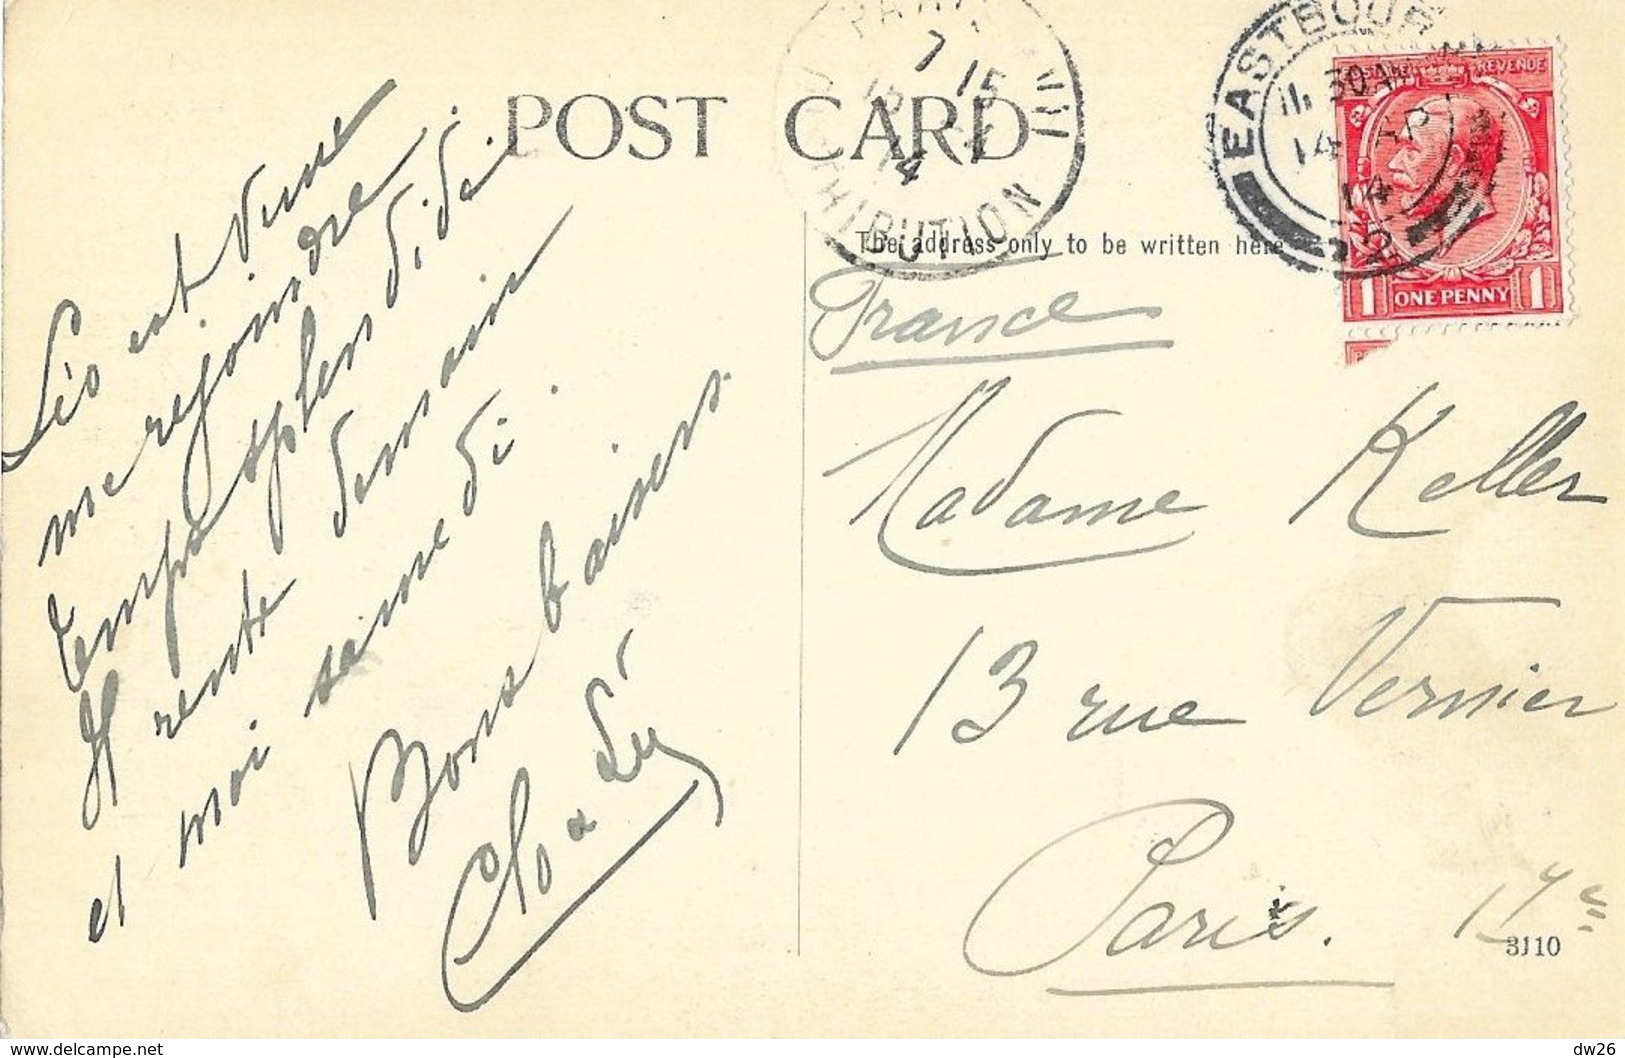 POST CARD
The address only to be written here
Léo est venue
me rejoindre
temps splendide.
Il rentre demain
et moi samedi.
Bons baisers
Clo & Léo
France
Madame Keller
13 rue Vernier
Paris. 17e
3J10
EASTBOURNE
11.30AM
14
14
PARIS XVII
7 15
14
DISTRIBUTION
REVENUE
1 ONE PENNY 1
dw26